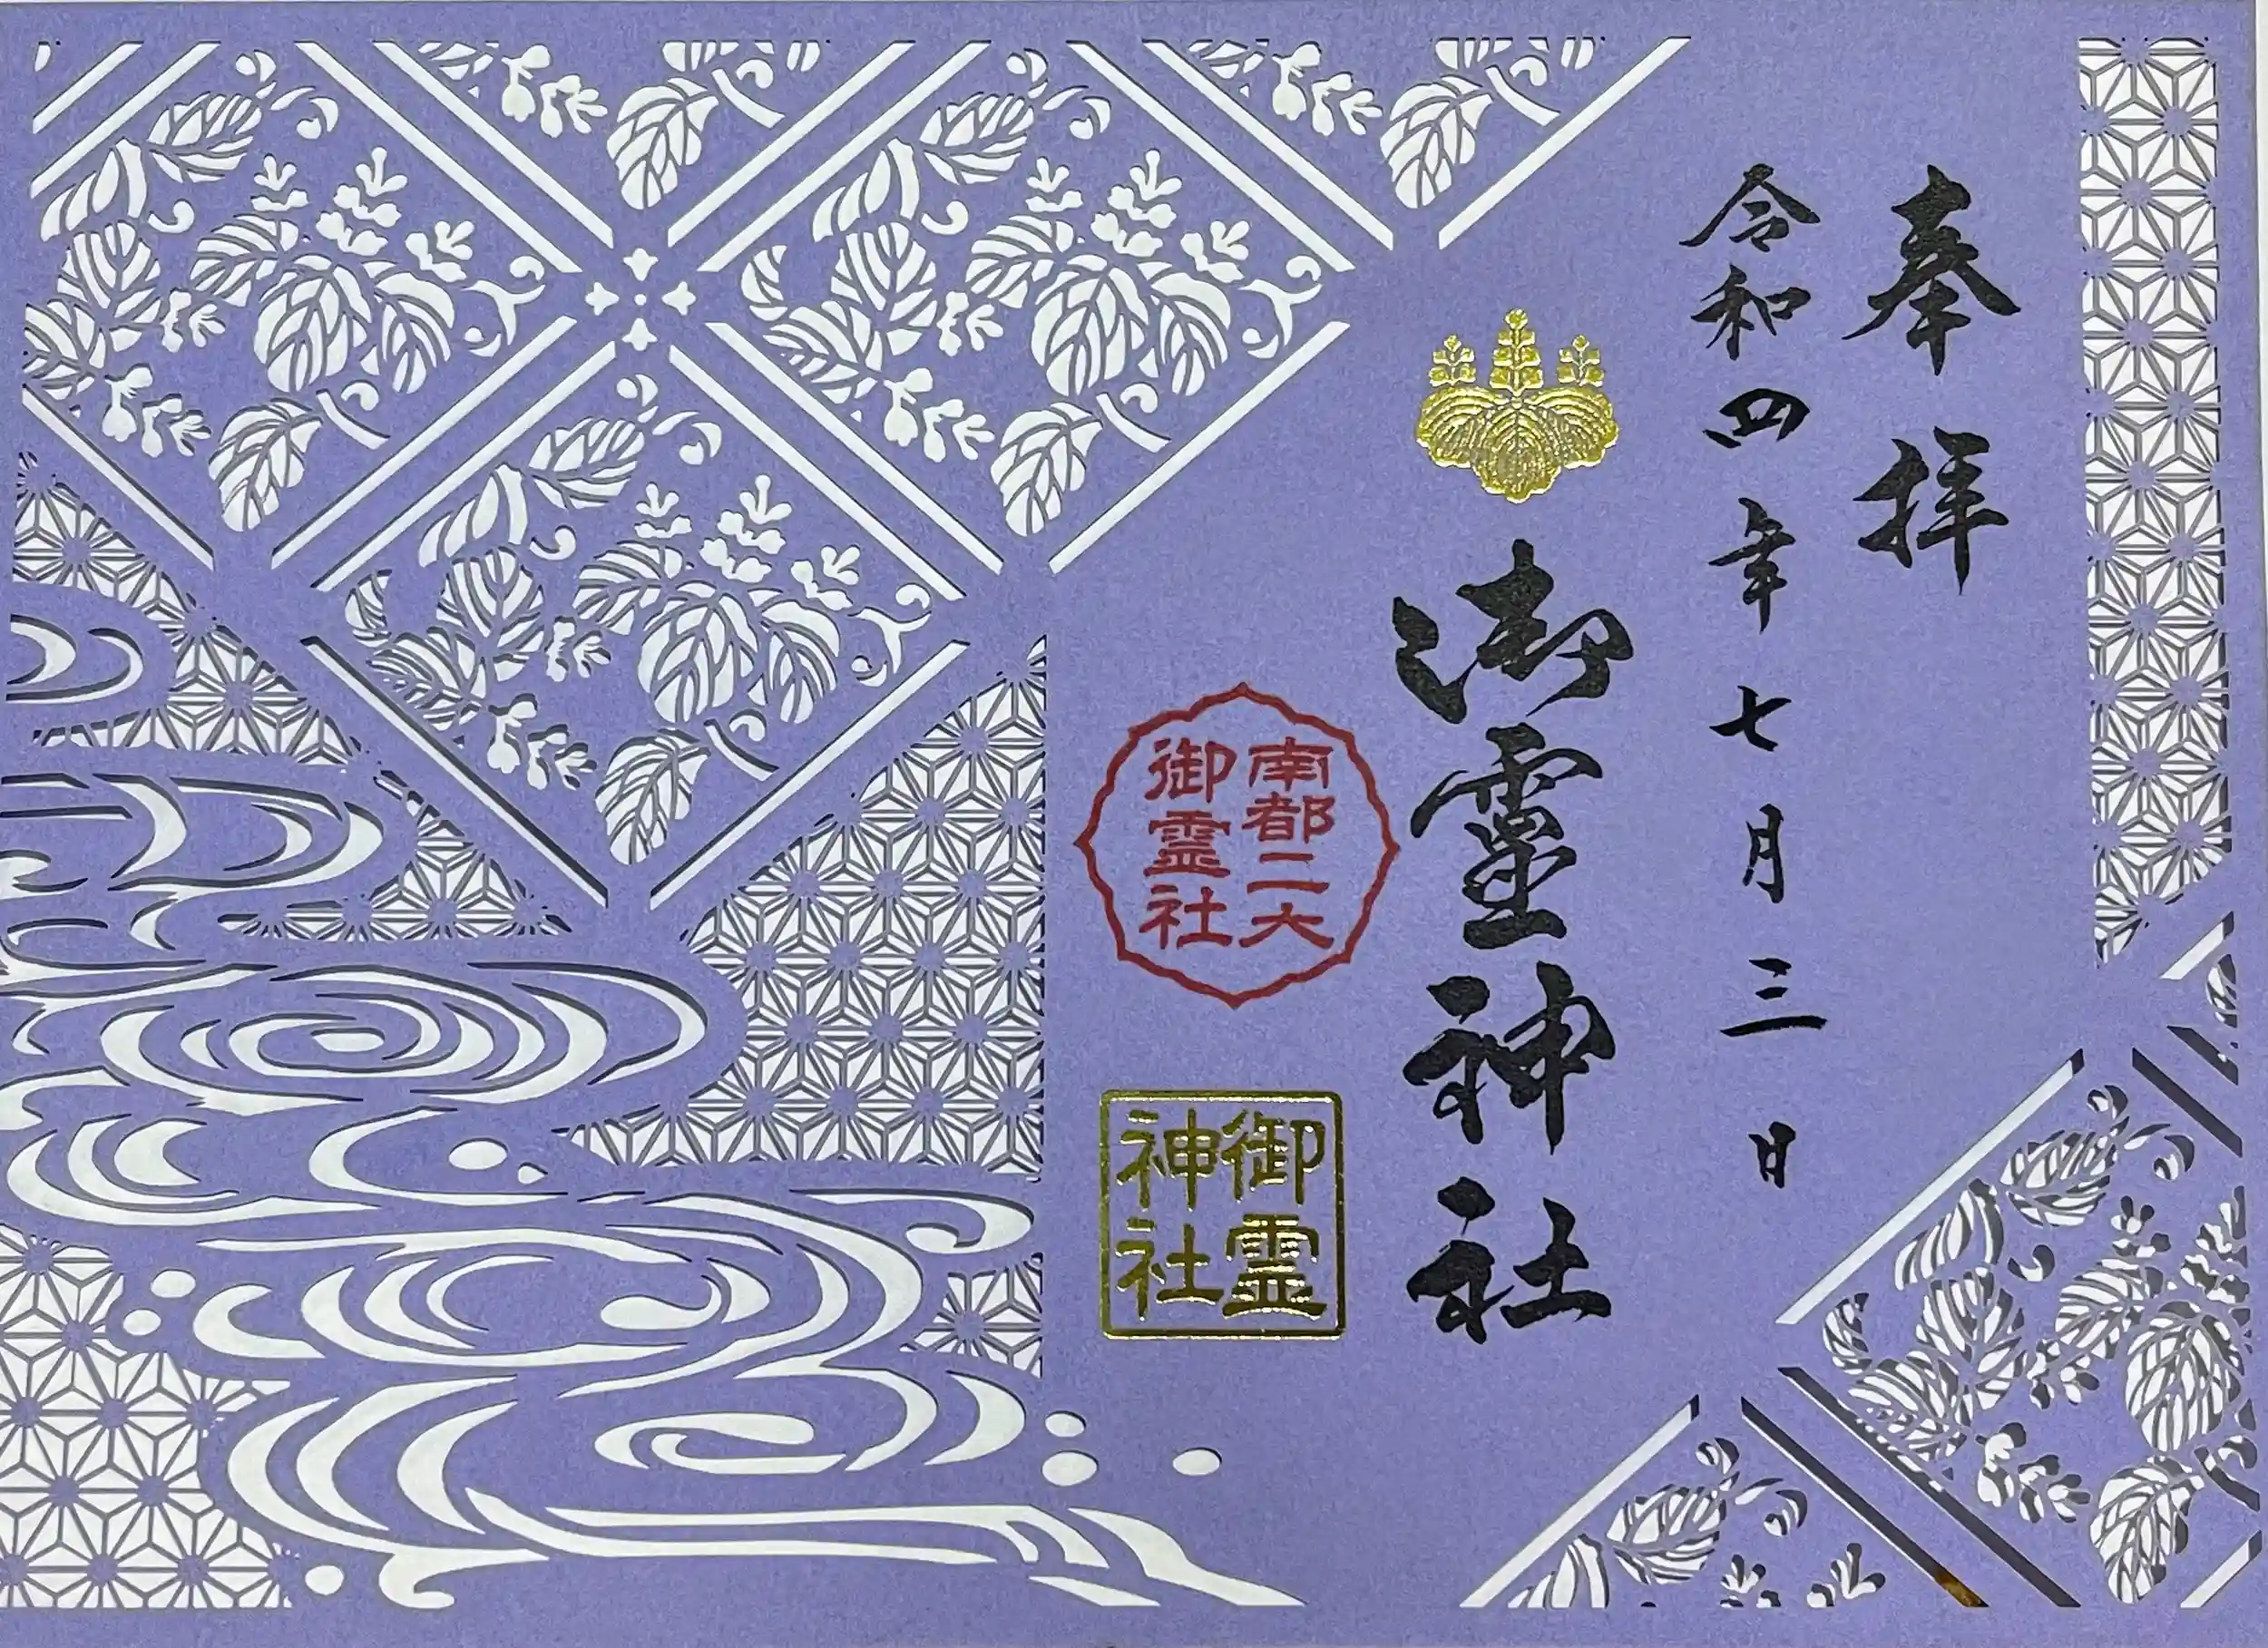 奉拝
令和四年七月三日
御霊神社
南都二大
御霊社
御霊
神社